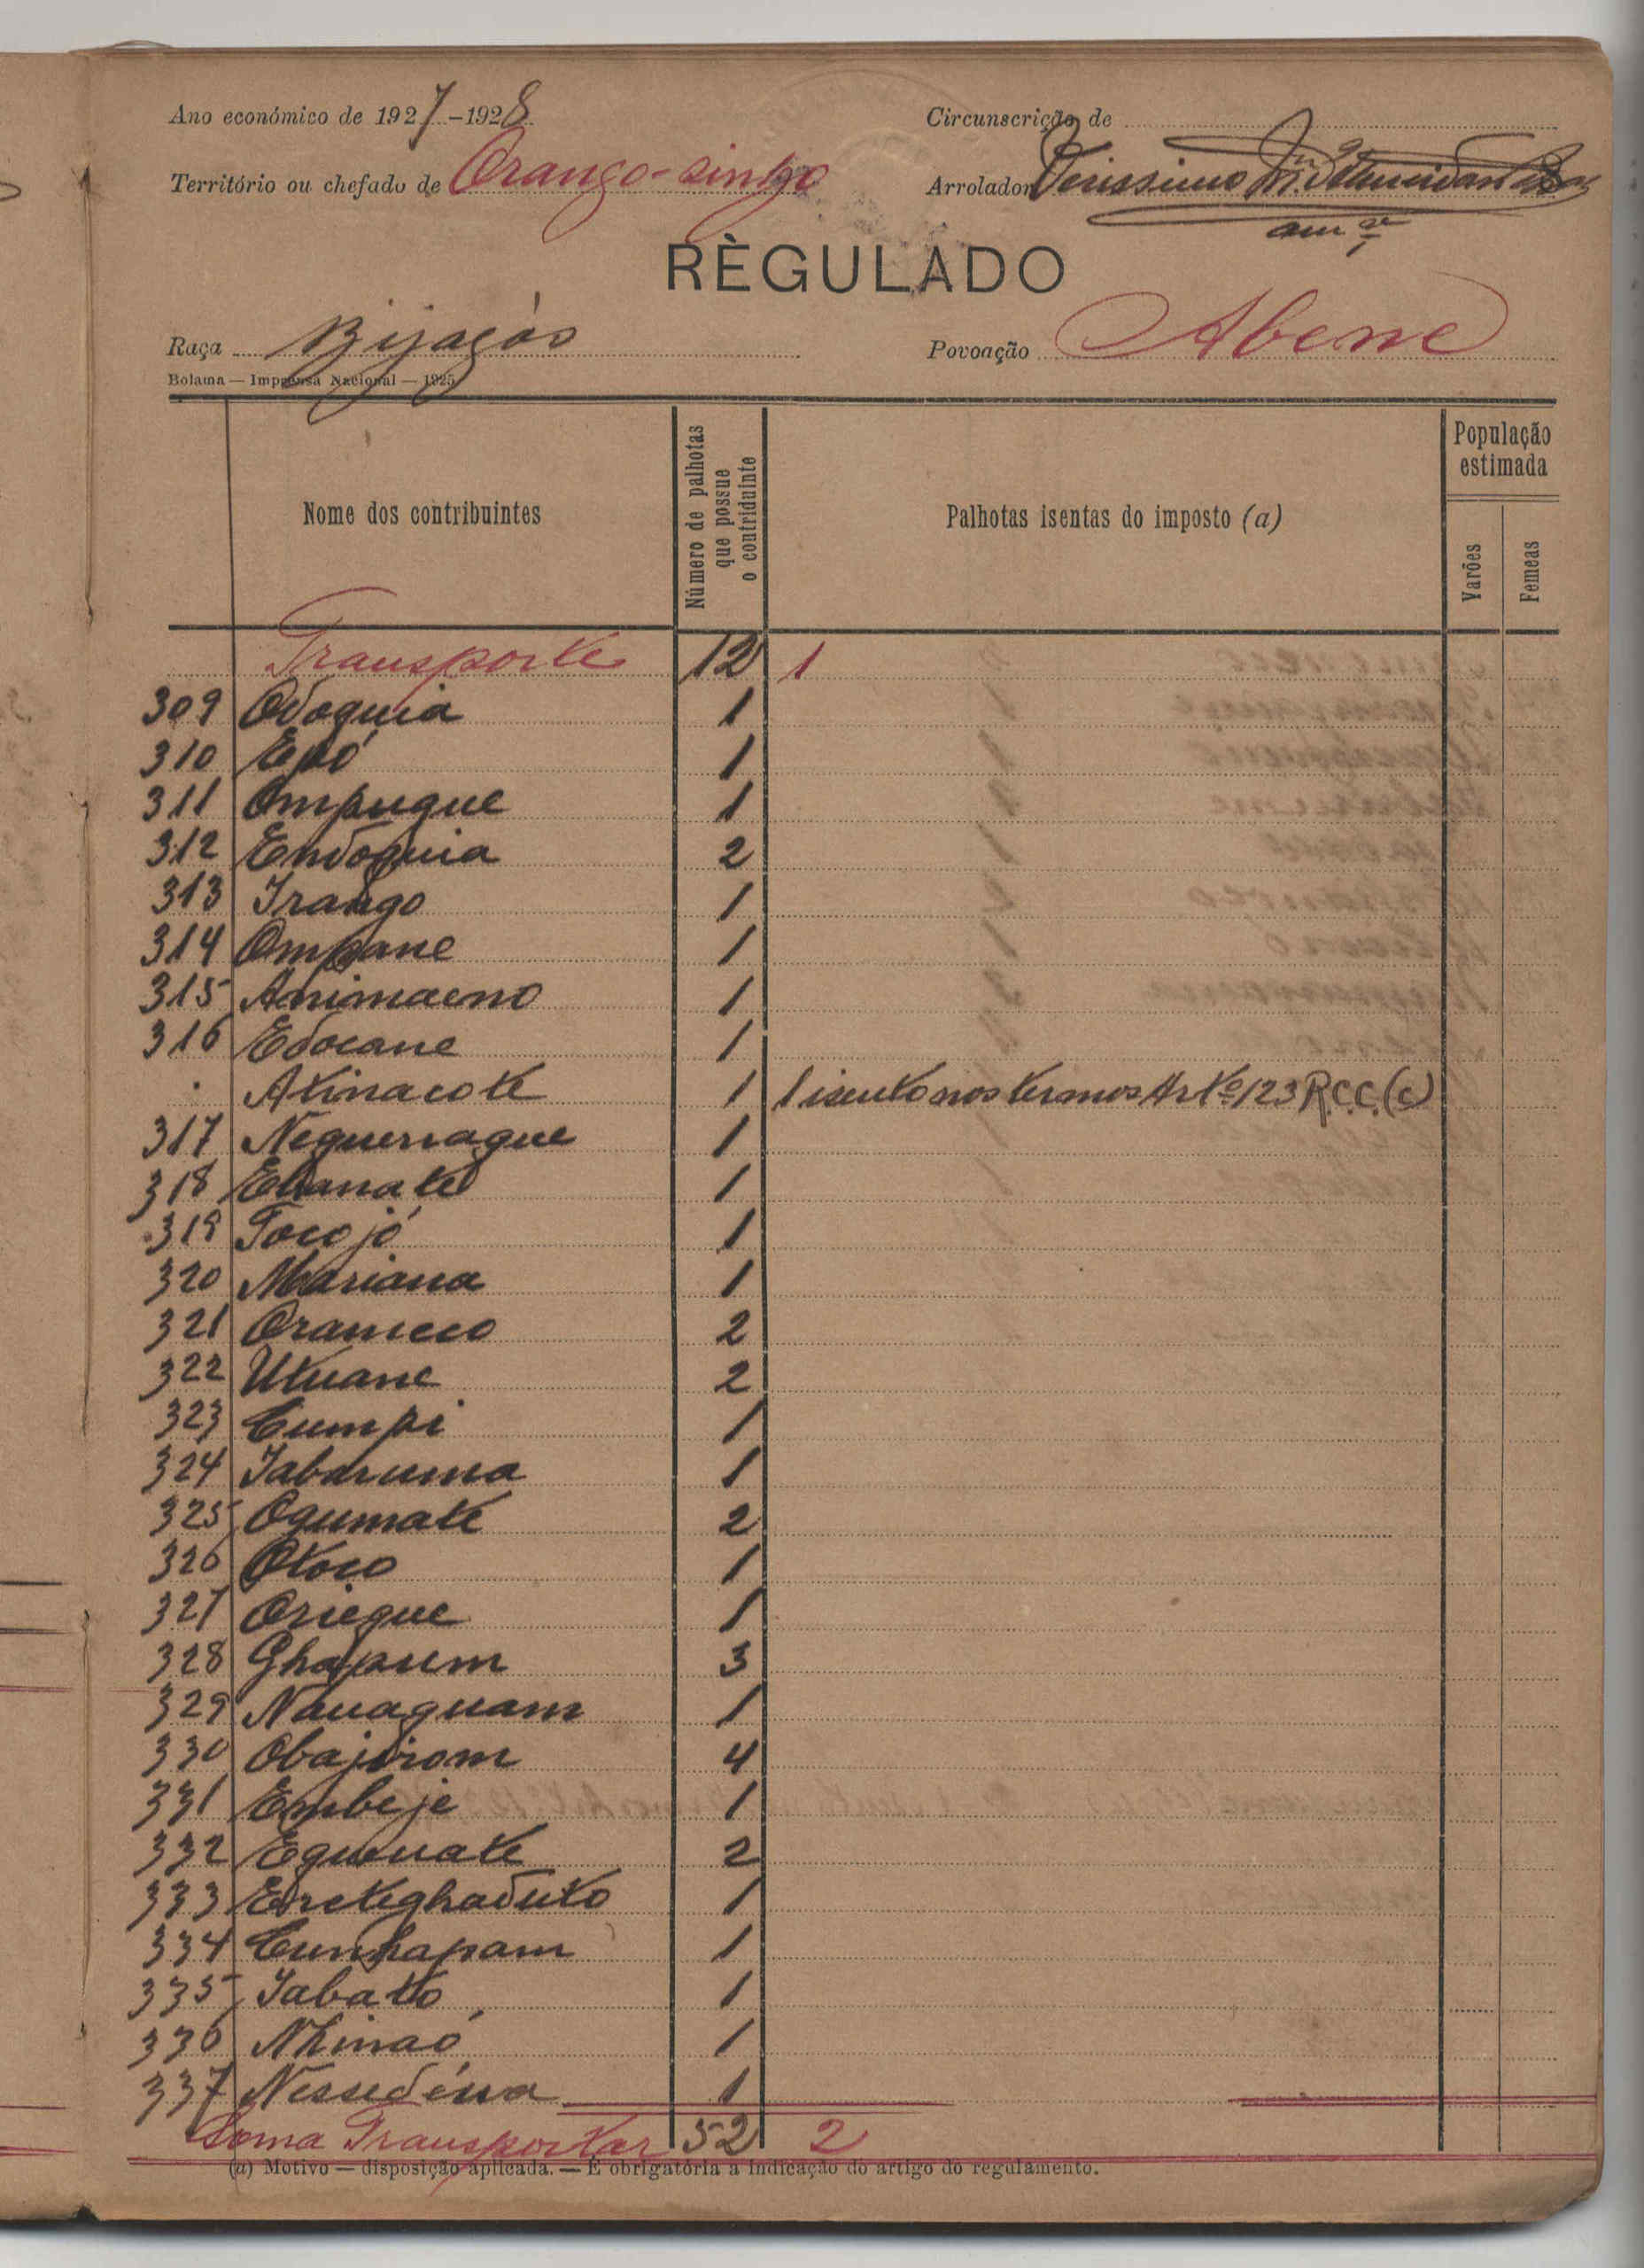 Ano económico de 1927-1928
Circunscrição de
Território ou chefado de Orango-singo
Arrolador Verissimo
RÈGULADO
Raça Bijagós
Povoação Abene
Bolama — Imprensa Nacional — 1925
Nome dos contribuintes
Número de palhotas que possue o contriduinte
Palhotas isentas do imposto (a)
População estimada
Varões
Femeas
Transporte 12 1
309 Odoquia 1
310 Epó 1
311 Ompugue 1
312 Endoquia 2
313 Irango 1
314 Ompane 1
315 Animaeno 1
316 Edocane 1
Atinacote 1 1 isento nos termos Artº 123 R.C.C. (c)
317 Neguenague 1
318 Ebanate 1
319 Tocojó 1
320 Mariana 1
321 Orameco 2
322 Utuane 2
323 Cumpi 1
324 Iabaruma 1
325 Ogumate 2
326 Otoco 1
327 Oriegue 1
328 Ghapum 3
329 Nauaguam 1
330 Obajirom 4
331 Embeje 1
332 Egumate 2
333 1
334 Cunhapam 1
335 Iabato 1
336 Nhinaó 1
337 1
Soma Transportar 52 2
(a) Motivo — disposição aplicada. — É obrigatória a indicação do artigo do regulamento.